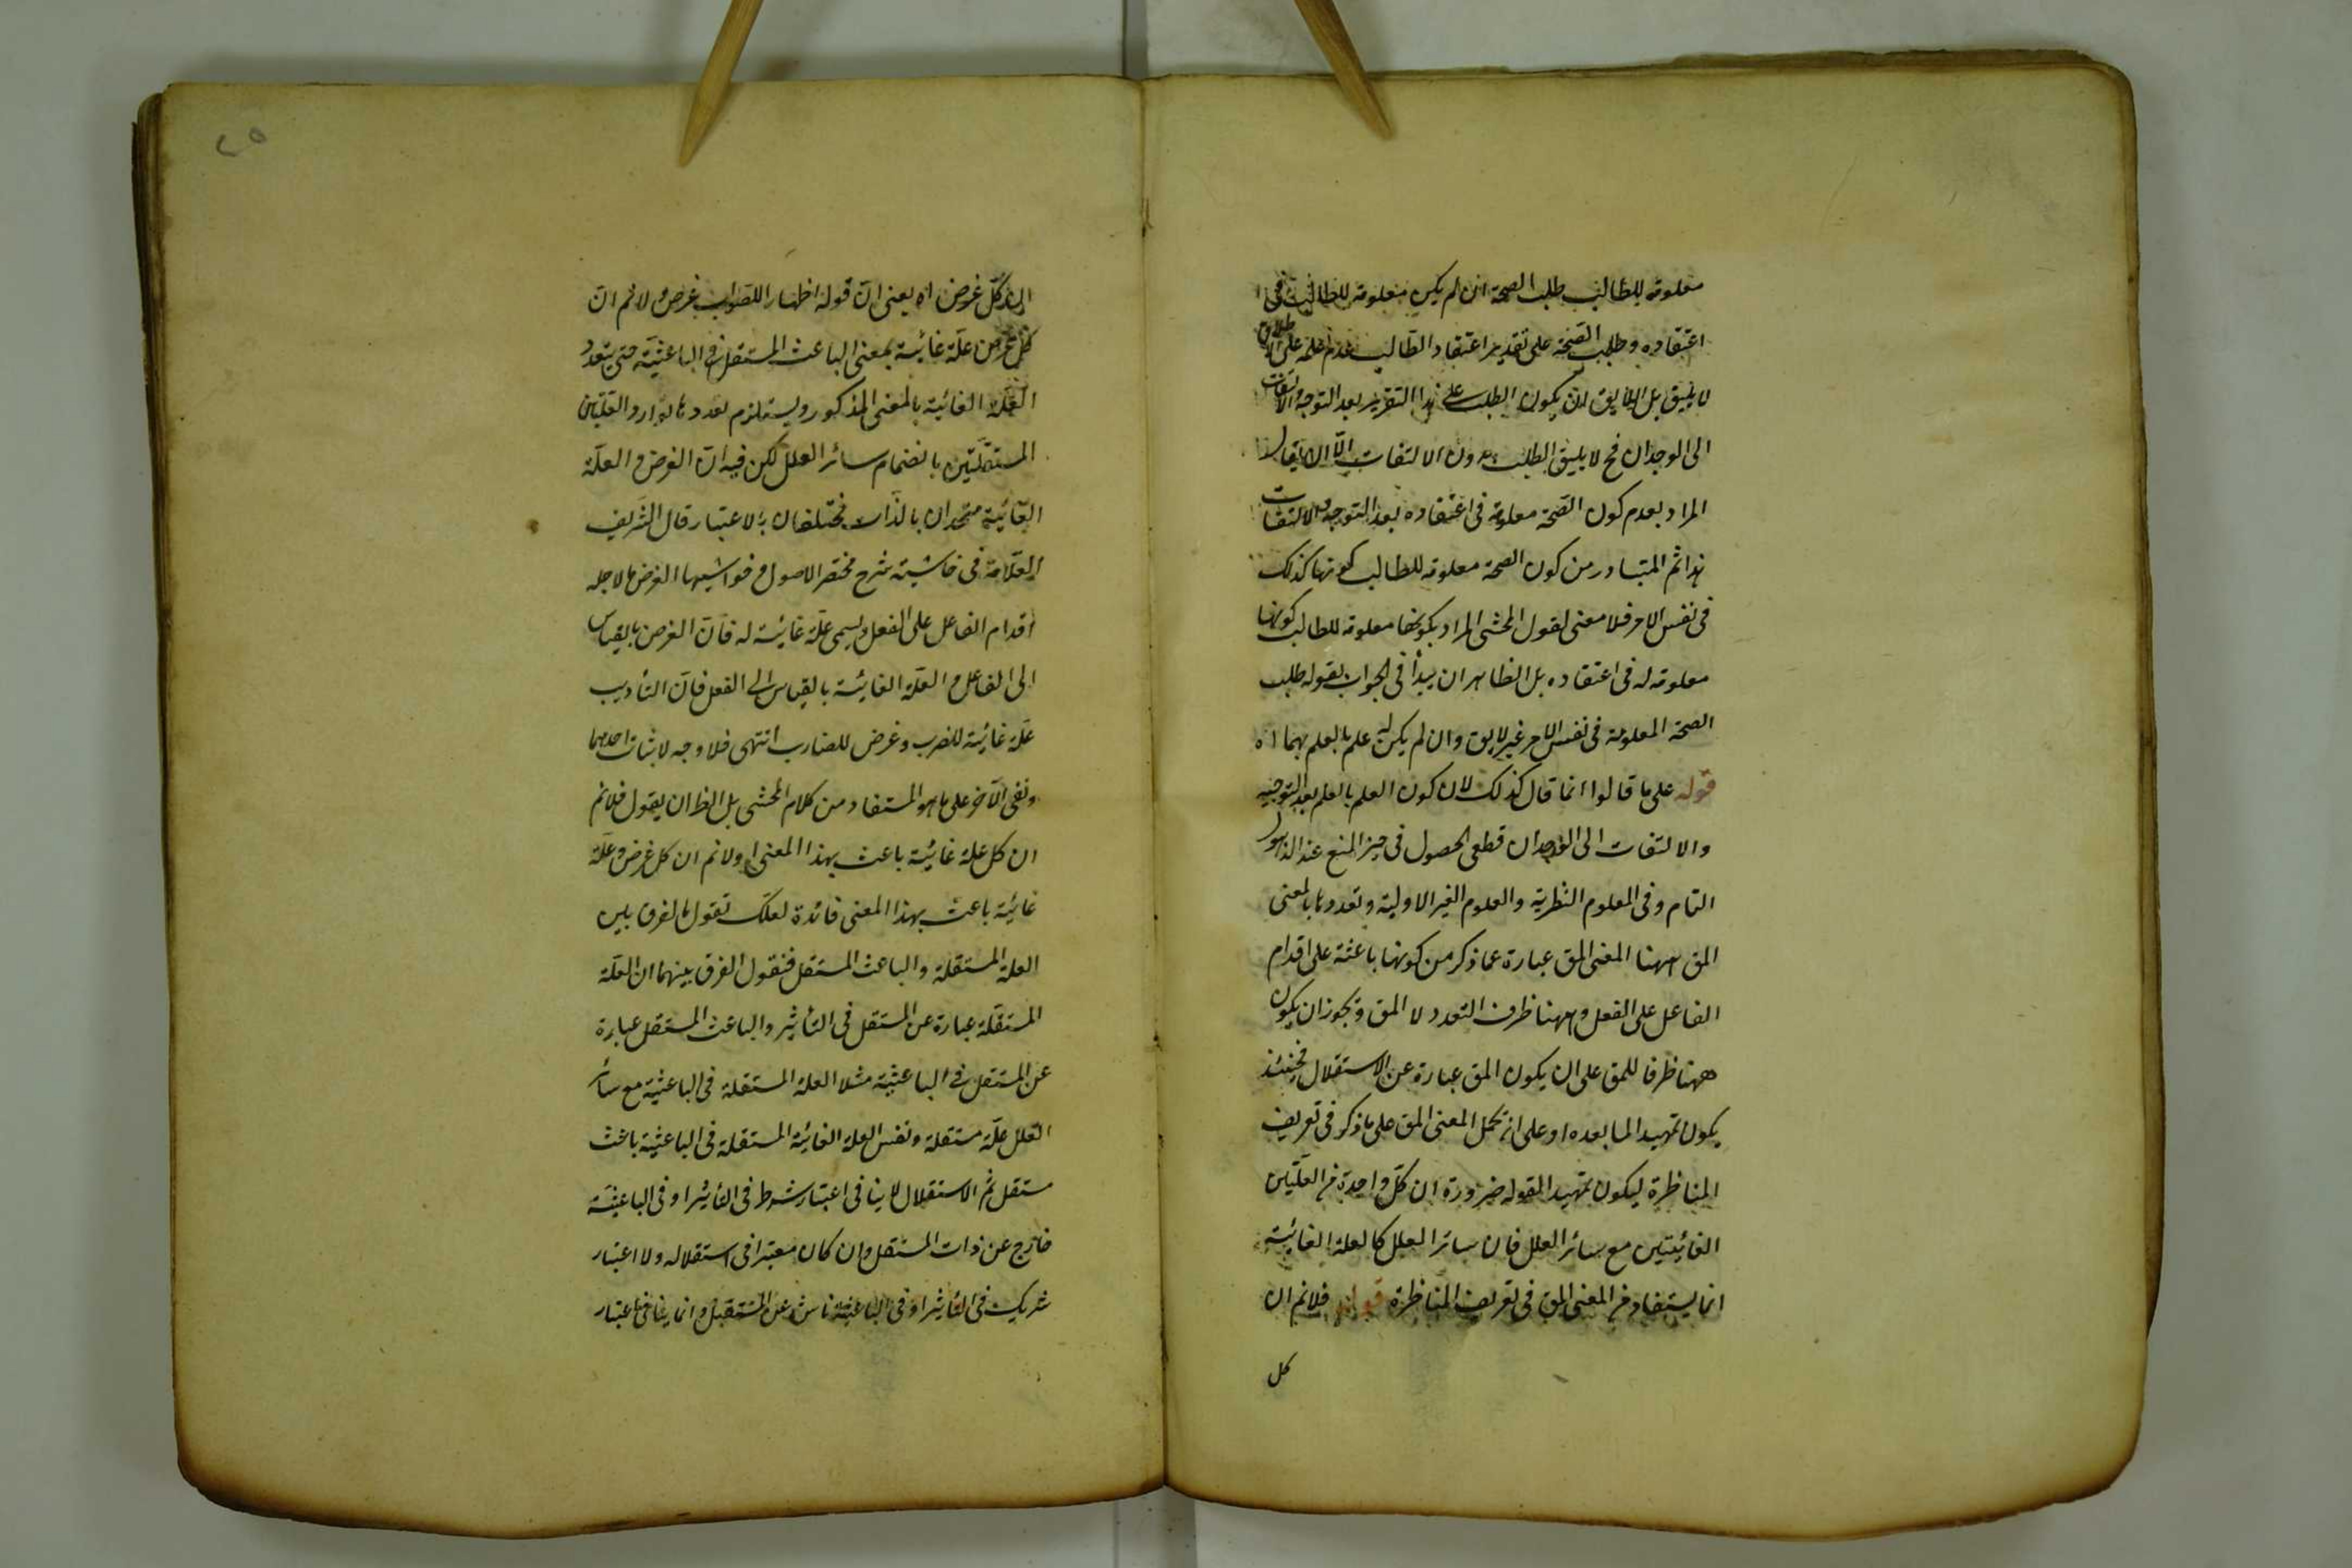 معلومة للطالب طلب الصحة ان لم يكن معلومة للطالب في
اعتقاده وطلب الصحة على تقدير اعتقاد الطالب عدم علمه على الاطلاق
لا يليق بل اللايق ان يكون الطلب على هذا التقدير بعد التوجه والالتفات
الى الوجدان فح لا يليق الطلب بدون الالتفات الا ان يقال
المراد بعدم كون الصحة معلومة في اعتقاده بعد التوجه والالتفات
هذا ثم المتبادر من كون الصحة معلومة للطالب كونها كذلك
في نفس الامر فلا معنى لقول المحشى المراد بكونها معلومة للطالب كونها
معلومة له في اعتقاده بل الظاهر ان يبدأ في الجواب بقوله طلب
الصحة المعلومة في نفس الامر غير لايق وان لم يكن له علم بالعلم بهما اه
قوله على ما قالوا انما قال كذلك لان كون العلم بالعلم بعد التوجيه
والالتفات الى الوجدان قطعى الحصول في حيز المنع عند الذهول
التام وفى المعلوم النظرية والعلوم الغير الاولية وتعددها بالمعنى
المق ههنا المعنى المق عبارة عما ذكر من كونها باعثة على اقدام
الفاعل على الفعل وههنا ظرف التعدد لا المق ويجوز ان يكون
ههنا ظرفا للمق على ان يكون المق عبارة عن الاستقلال فحينئذ
يكون تمهيدا لما بعده او على ان يحمل المعنى المق على ما ذكر فى تعريف
المناظرة ليكون تمهيدا لقوله ضرورة ان كل واحدة من العلتين
الغائيتين مع سائر العلل فان سائر العلل كالعلة الغائية
انما يستفاد من المعنى المق فى تعريف المناظرة قوله فلانم ان
كل
ان كل غرض اه يعنى ان قوله اظهارا للصواب غرض ولانم ان
كل غرض علة غائية بمعنى الباعث المستقل فى الباعثية حتى يتعدد
العلة الغائية بالمعنى المذكور ويستلزم تعددها توارد العلتين
المستقلتين بانضمام سائر العلل لكن فيه ان الغرض والعلة
الغائية متحدان بالذات مختلفان بالاعتبار قال الشريف
العلامة فى حاشية شرح مختصر الاصول وحواشيها الغرض ما لاجله
اقدام الفاعل على الفعل ويسمى علة غائية له فان الغرض بالقياس
الى الفاعل والعلة الغائية بالقياس الى الفعل فان التأديب
علة غائية للضرب وغرض للضارب انتهى فلا وجه لاثبات احدهما
ونفى الآخر على ما هو المستفاد من كلام المحشى بل الظ ان يقول فلانم
ان كل علة غائية باعث بهذا المعنى او لانم ان كل غرض وعلة
غائية باعث بهذا المعنى فائدة لعلك تقول ما الفرق بين
العلة المستقلة والباعث المستقل فنقول الفرق بينهما ان العلة
المستقلة عبارة عن المستقل فى التأثير والباعث المستقل عبارة
عن المستقل فى الباعثية مثلا العلة المستقلة فى الباعثية مع سائر
العلل علة مستقلة ونفس العلة الغائية المستقلة فى الباعثية باعث
مستقل ثم الاستقلال لا ينافى اعتبار شرط فى التأثير او فى الباعثية
خارج عن ذات المستقل وان كان معتبرا فى استقلاله ولا اعتبار
شريك فى التأثير او فى الباعثية ناش عن المستقل وانما ينافى اعتبار